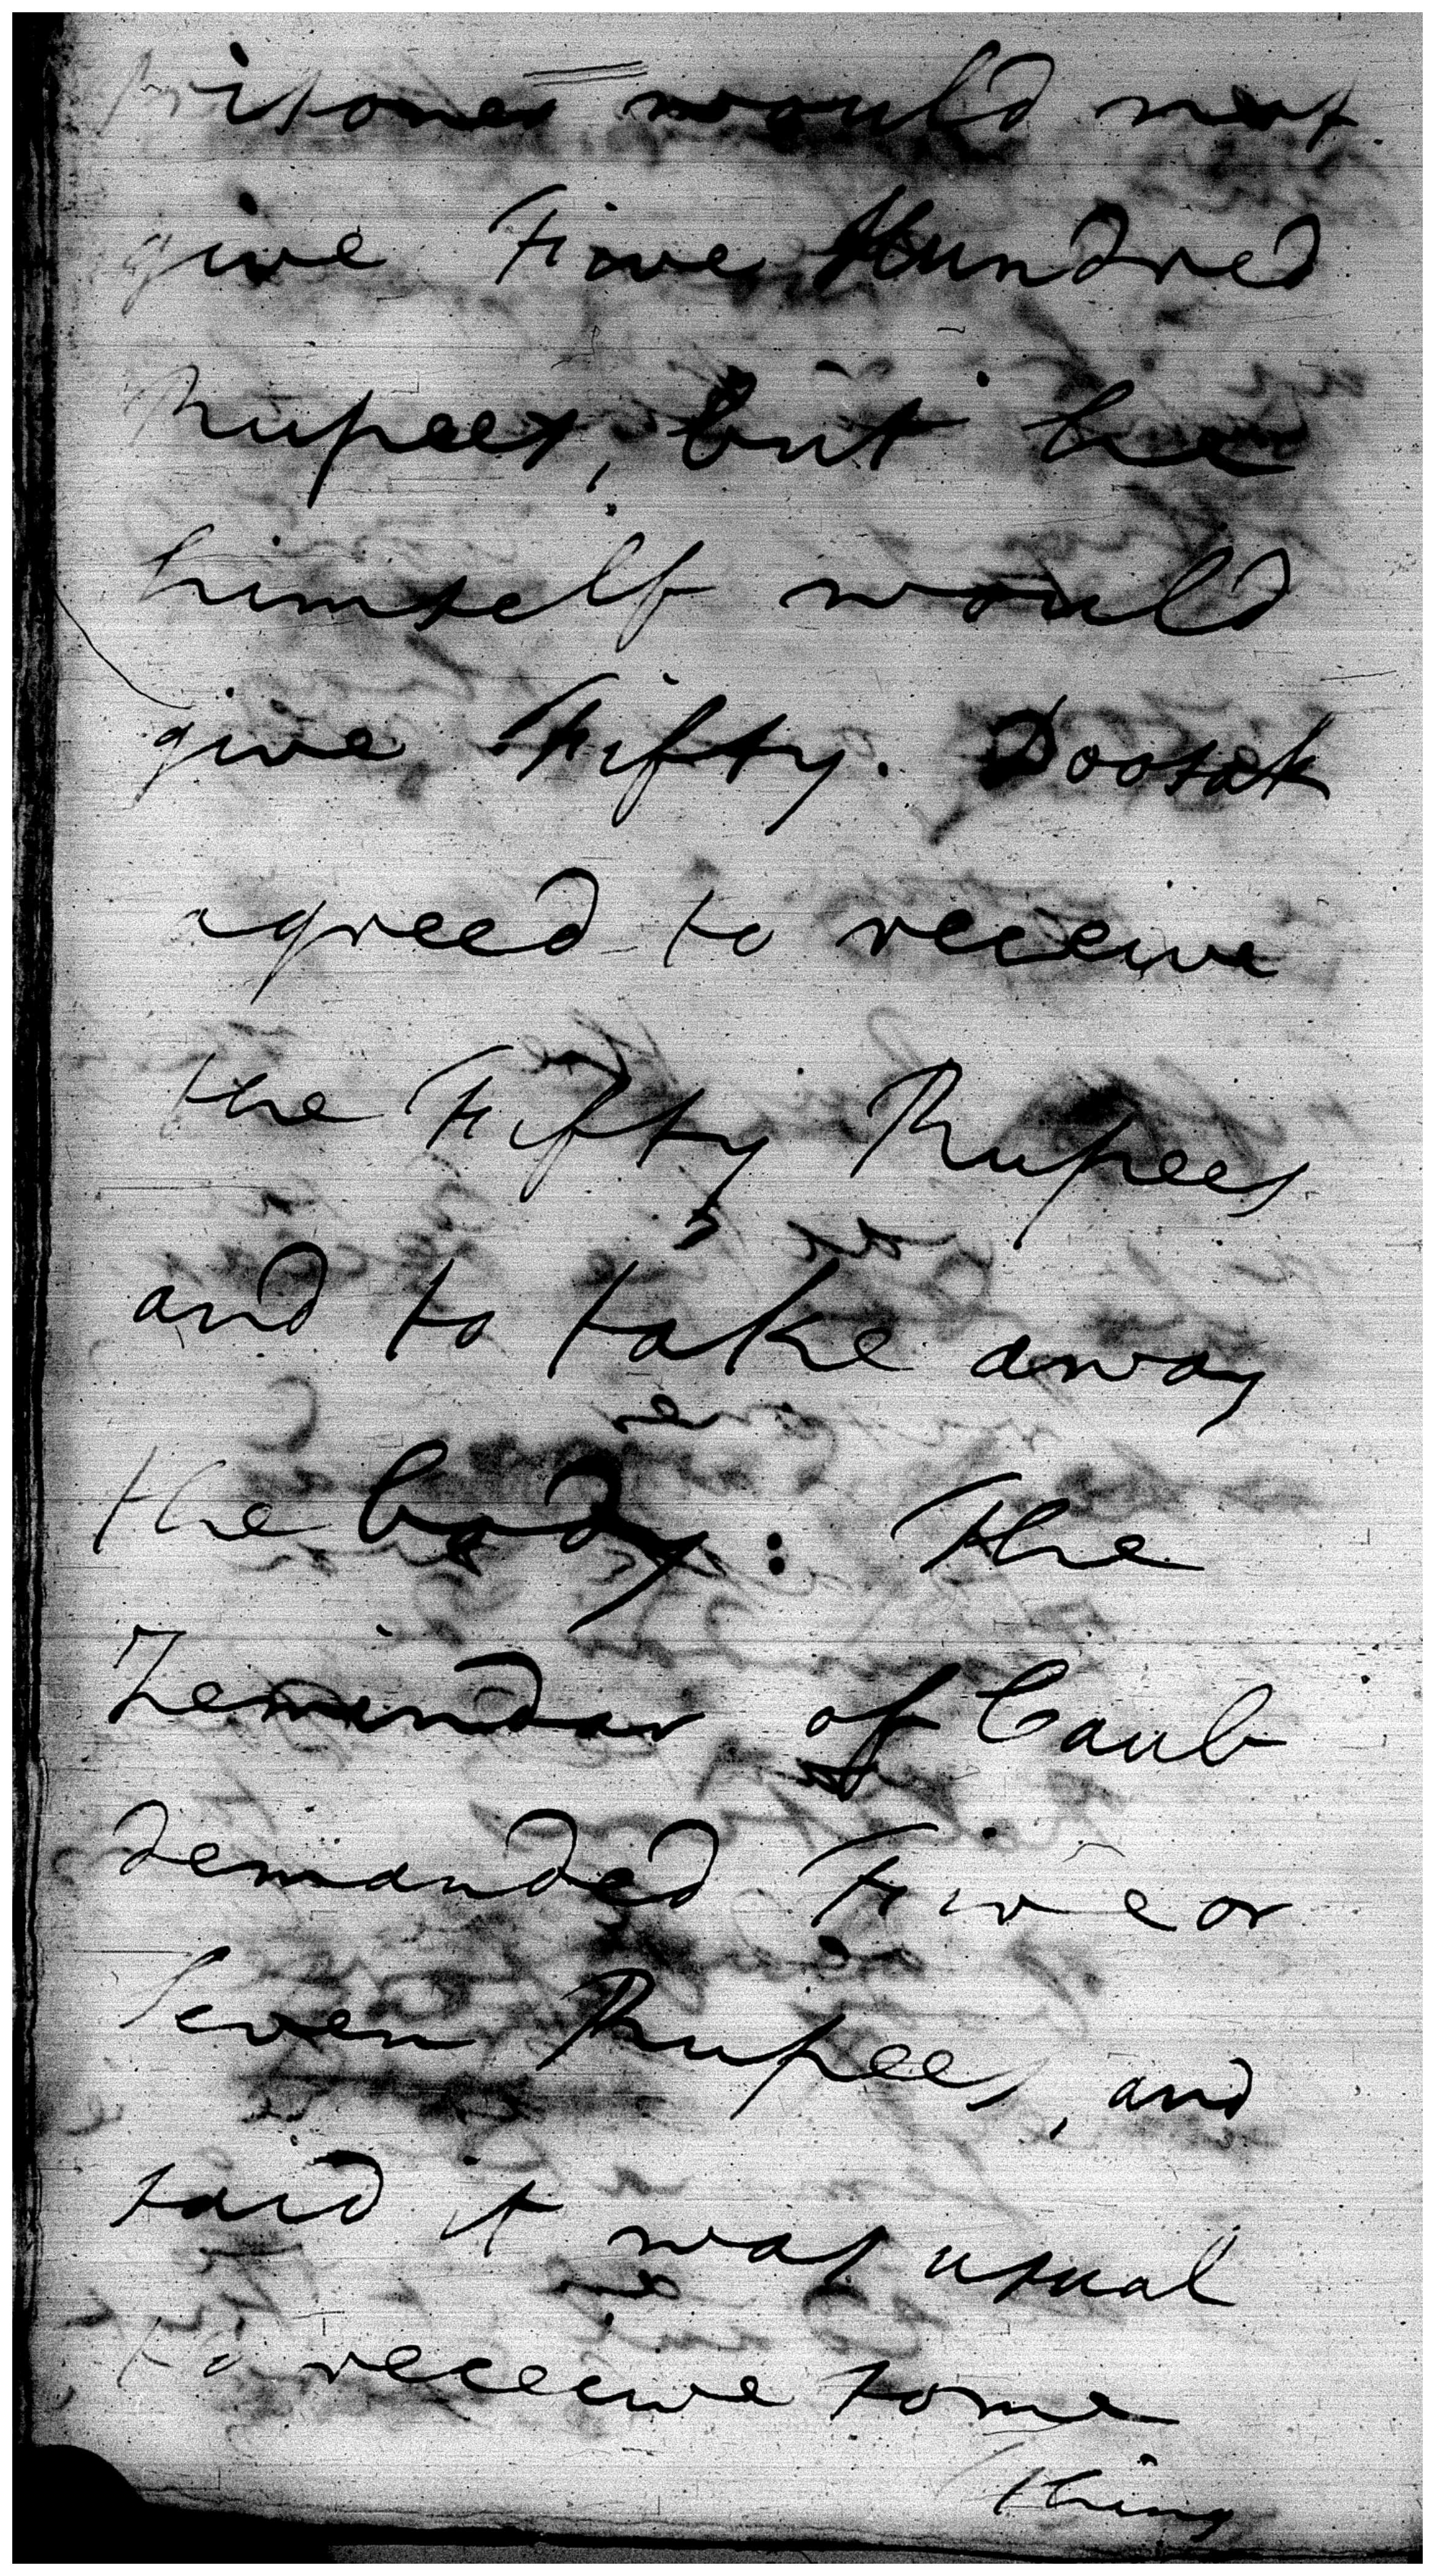 prisoner would not
give Five Hundred
Rupees, but he
himself would
give Fifty. Doosak
agreed to receive
the Fifty Rupees
and to take away
the body: The
Zemindar of Caub
demanded Five or
Seven Rupees, and
said it was usual
to receive some
thing